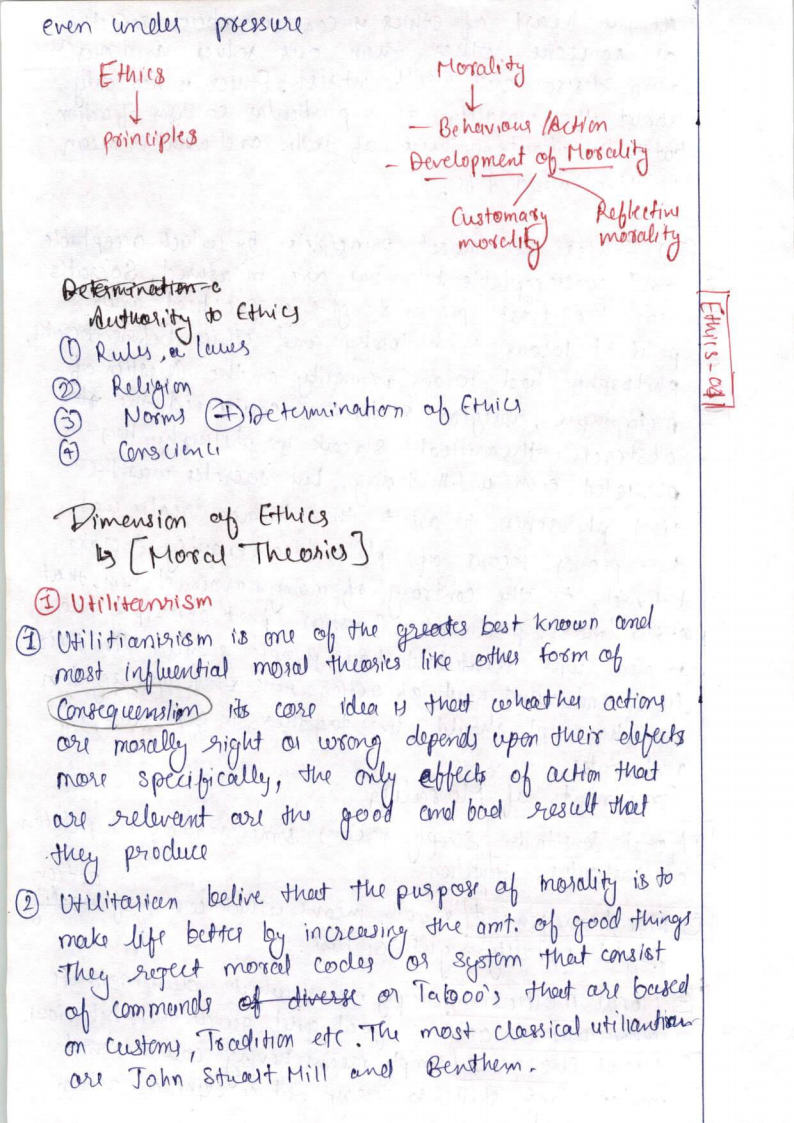 even under pressure
Ethics
↓
principles
Morality
↓
- Behaviour/Action
- Development of Morality
Customary morality
Reflective morality
Determination c
Authority to Ethics
① Rules, a laws
② Religion
③ Norms + Determination of Ethics
④ Conscience
Dimension of Ethics
↳ [Moral Theories]
① Utiliteanrism
① Utilitianirism is one of the greates best known and
most influential moral theories like other form of
Consequemslim its core idea is that whather actions
are morally right or wrong depends upon their defects
more specifically, the only effects of action that
are relevant are the good and bad result that
they produce
② Utilitarian belive that the purpose of morality is to
make life better by increasing the amt. of good things
They reject moral codes or system that consist
of commands of diverse or Taboo's that are based
on customs, Tradition etc. The most classical utiliantian
are John Stuart Mill and Benthem.
Ethics-01